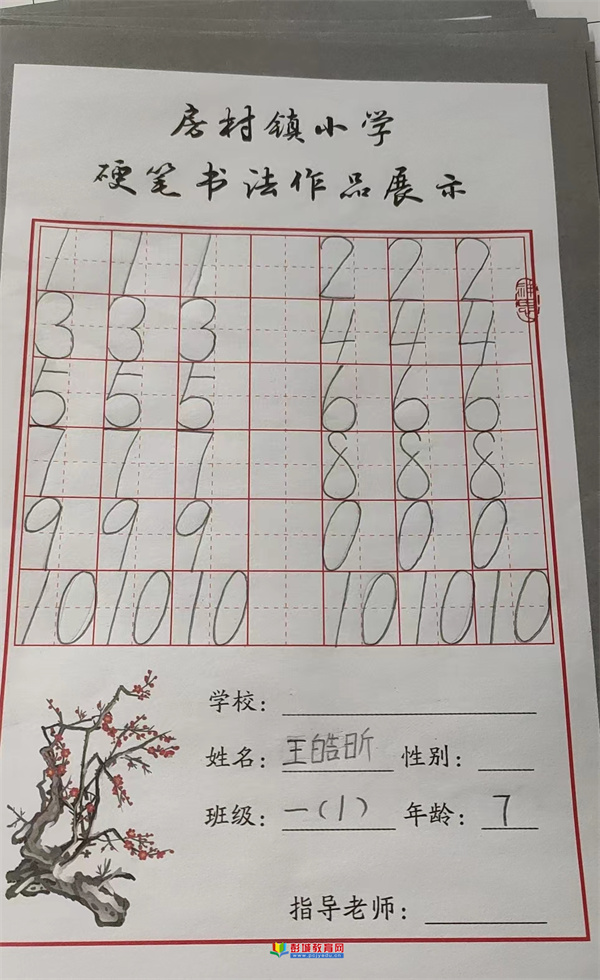 房村镇小学
硬笔书法作品展示
1 1 1 2 2 2
3 3 3 4 4 4
5 5 5 6 6 6
7 7 7 8 8 8
9 9 9 0 0 0
10 10 10 10 10 10
学校：
姓名：王皓昕 性别：
班级：一（1） 年龄：7
指导老师：
彭城教育网
www.pcjyedu.cn